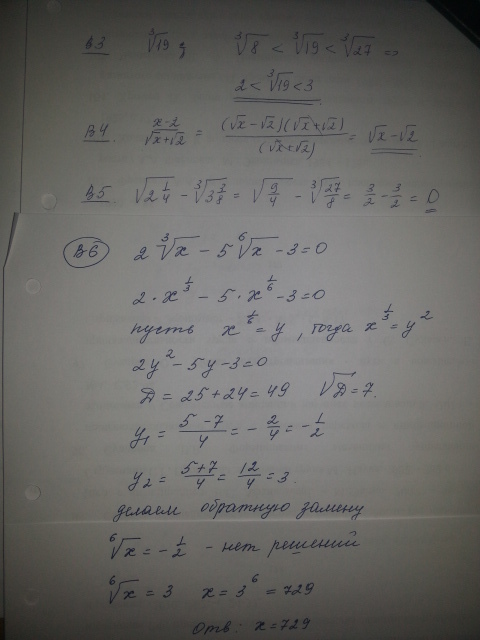 В3 ∛19 ; ∛8 < ∛19 < ∛27 =>
2 < ∛19 < 3
В4. (x-2)/(√x+√2) = (√x-√2)(√x+√2)/(√x+√2) = √x-√2
В5. √(2 1/4) - ∛(3 3/8) = √(9/4) - ∛(27/8) = 3/2 - 3/2 = 0
В6 2 ∛x - 5 ⁶√x - 3 = 0
2 · x^(1/3) - 5 · x^(1/6) - 3 = 0
пусть x^(1/6) = y, тогда x^(1/3) = y²
2y² - 5y - 3 = 0
D = 25 + 24 = 49 √D = 7.
y₁ = (5-7)/4 = -2/4 = -1/2
y₂ = (5+7)/4 = 12/4 = 3.
делаем обратную замену
⁶√x = -1/2 - нет решений
⁶√x = 3 x = 3⁶ = 729
Отв: x = 729